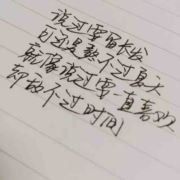 说过要留长发
可还是熬不过夏天
就像说过要一直喜欢
却敌不过时间